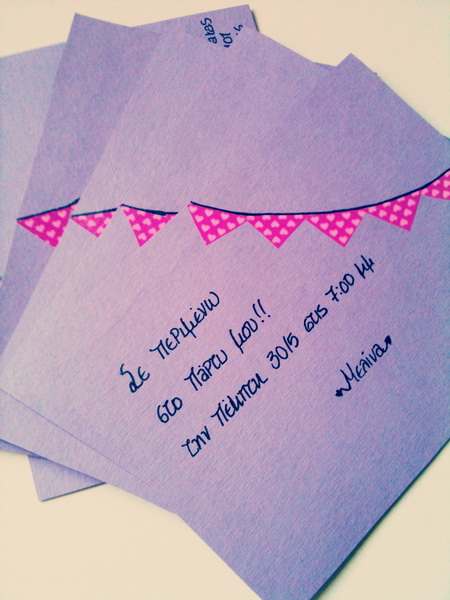 Σε περιμένω
στο πάρτυ μου!!
την Πέμπτη 30/5 στις 7:00 μμ
Μελίνα